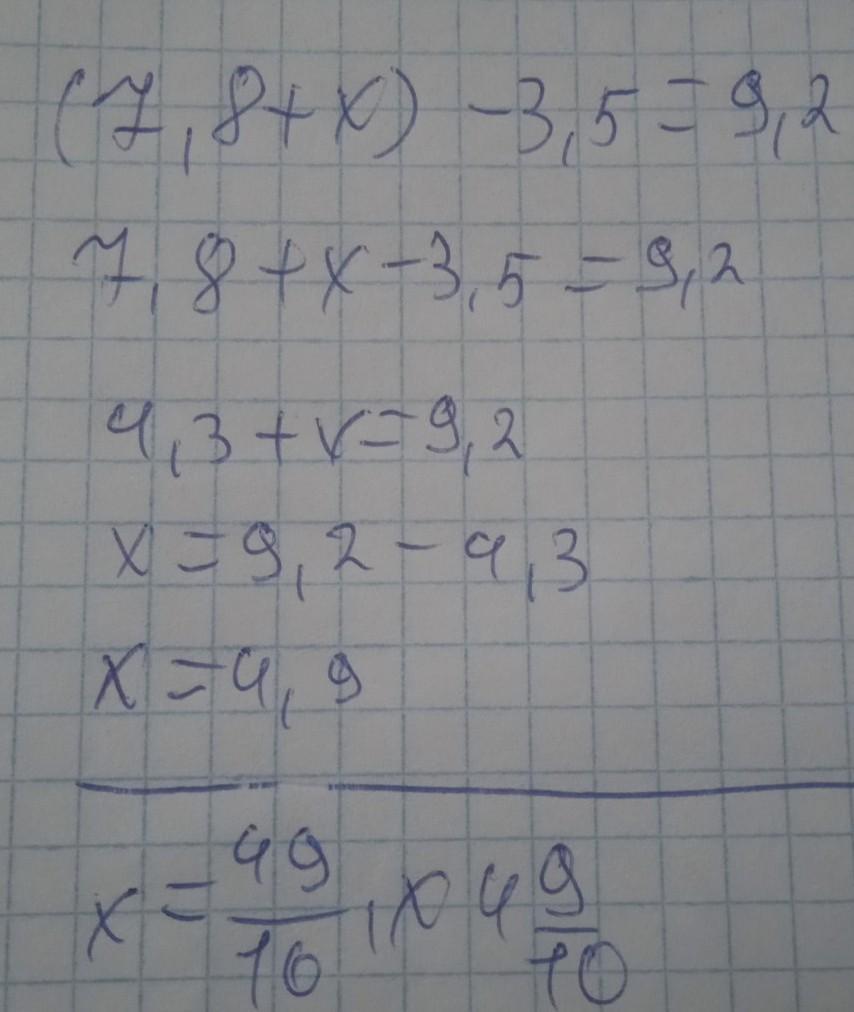 (7,8+x) -3,5=9,2
7,8+x-3,5=9,2
4,3+x=9,2
x=9,2-4,3
x=4,9
x=49/10, x 4 9/10